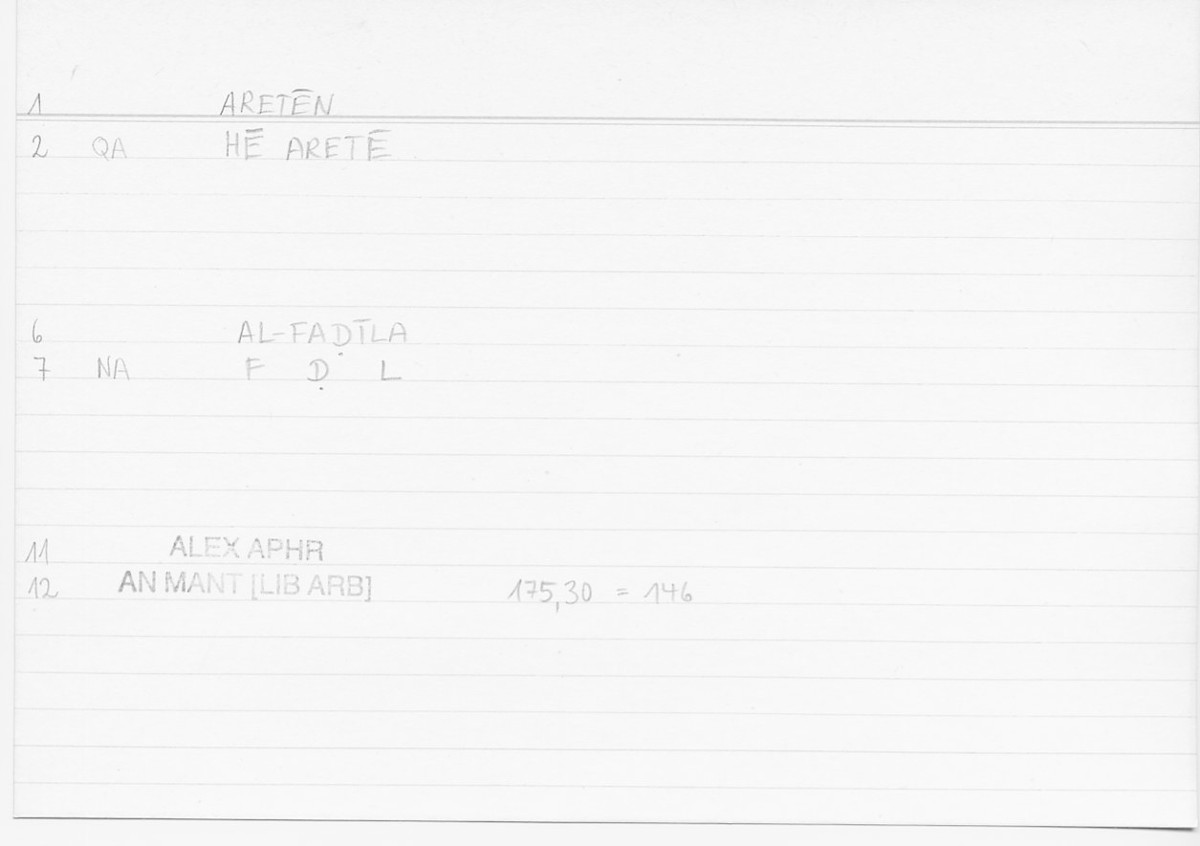 1 ARETĒN
2 QA HĒ ARETĒ
6 AL-FAḌĪLA
7 NA F Ḍ L
11 ALEX APHR
12 AN MANT [LIB ARB] 175,30 = 146